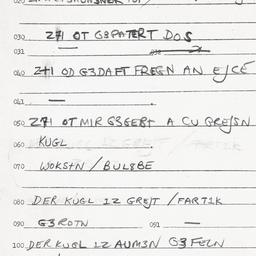 030 ZHI OT G3PATERT DOS
031 —
040 ZHI OD G3DAFT FREGN AN EJCE
041 —
050 ZHI OT MIR G3GEBT A CU GREJSN
060 KUGL
070 WOKSTN / BULBBE
080 DER KUGL IZ GREJT / FARTIK
090 G3ROTN 091 —
100 DER KUGL IZ AUM3N G3FELN